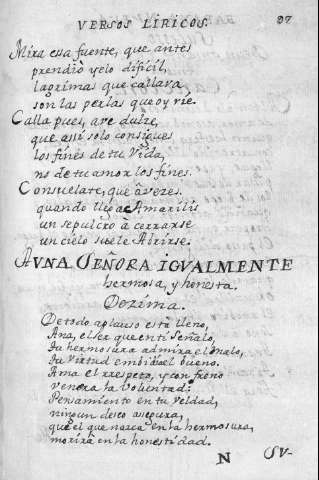 VERSOS LIRICOS. 97
Mira essa fuente, que antes
prendiò yelo dificil,
lagrimas que callava
son las perlas que oy rie.
Calla pues, ave dulze,
que assi solo consigues
los fines de tu Vida,
no de tu amor los fines.
Consuelate, que â vezes.
quando llega Amarilis
un sepulcro à cerrarse
un cielo suele Abrirse.
A VNA SEÑORA IGVALMENTE
hermosa, y honesta.
Dezima.
De todo aplauso està lleno,
Ana, el ser que en ti señalo,
tu hermosura admira el malo,
tu Virtud embidia el bueno.
Ama el respeto, y con freno
venera la Voluntad:
Pensamiento en tu Veldad,
ningun deseo asegura,
que el que nazca en la hermosura,
morirà en la honestidad.
N SV-